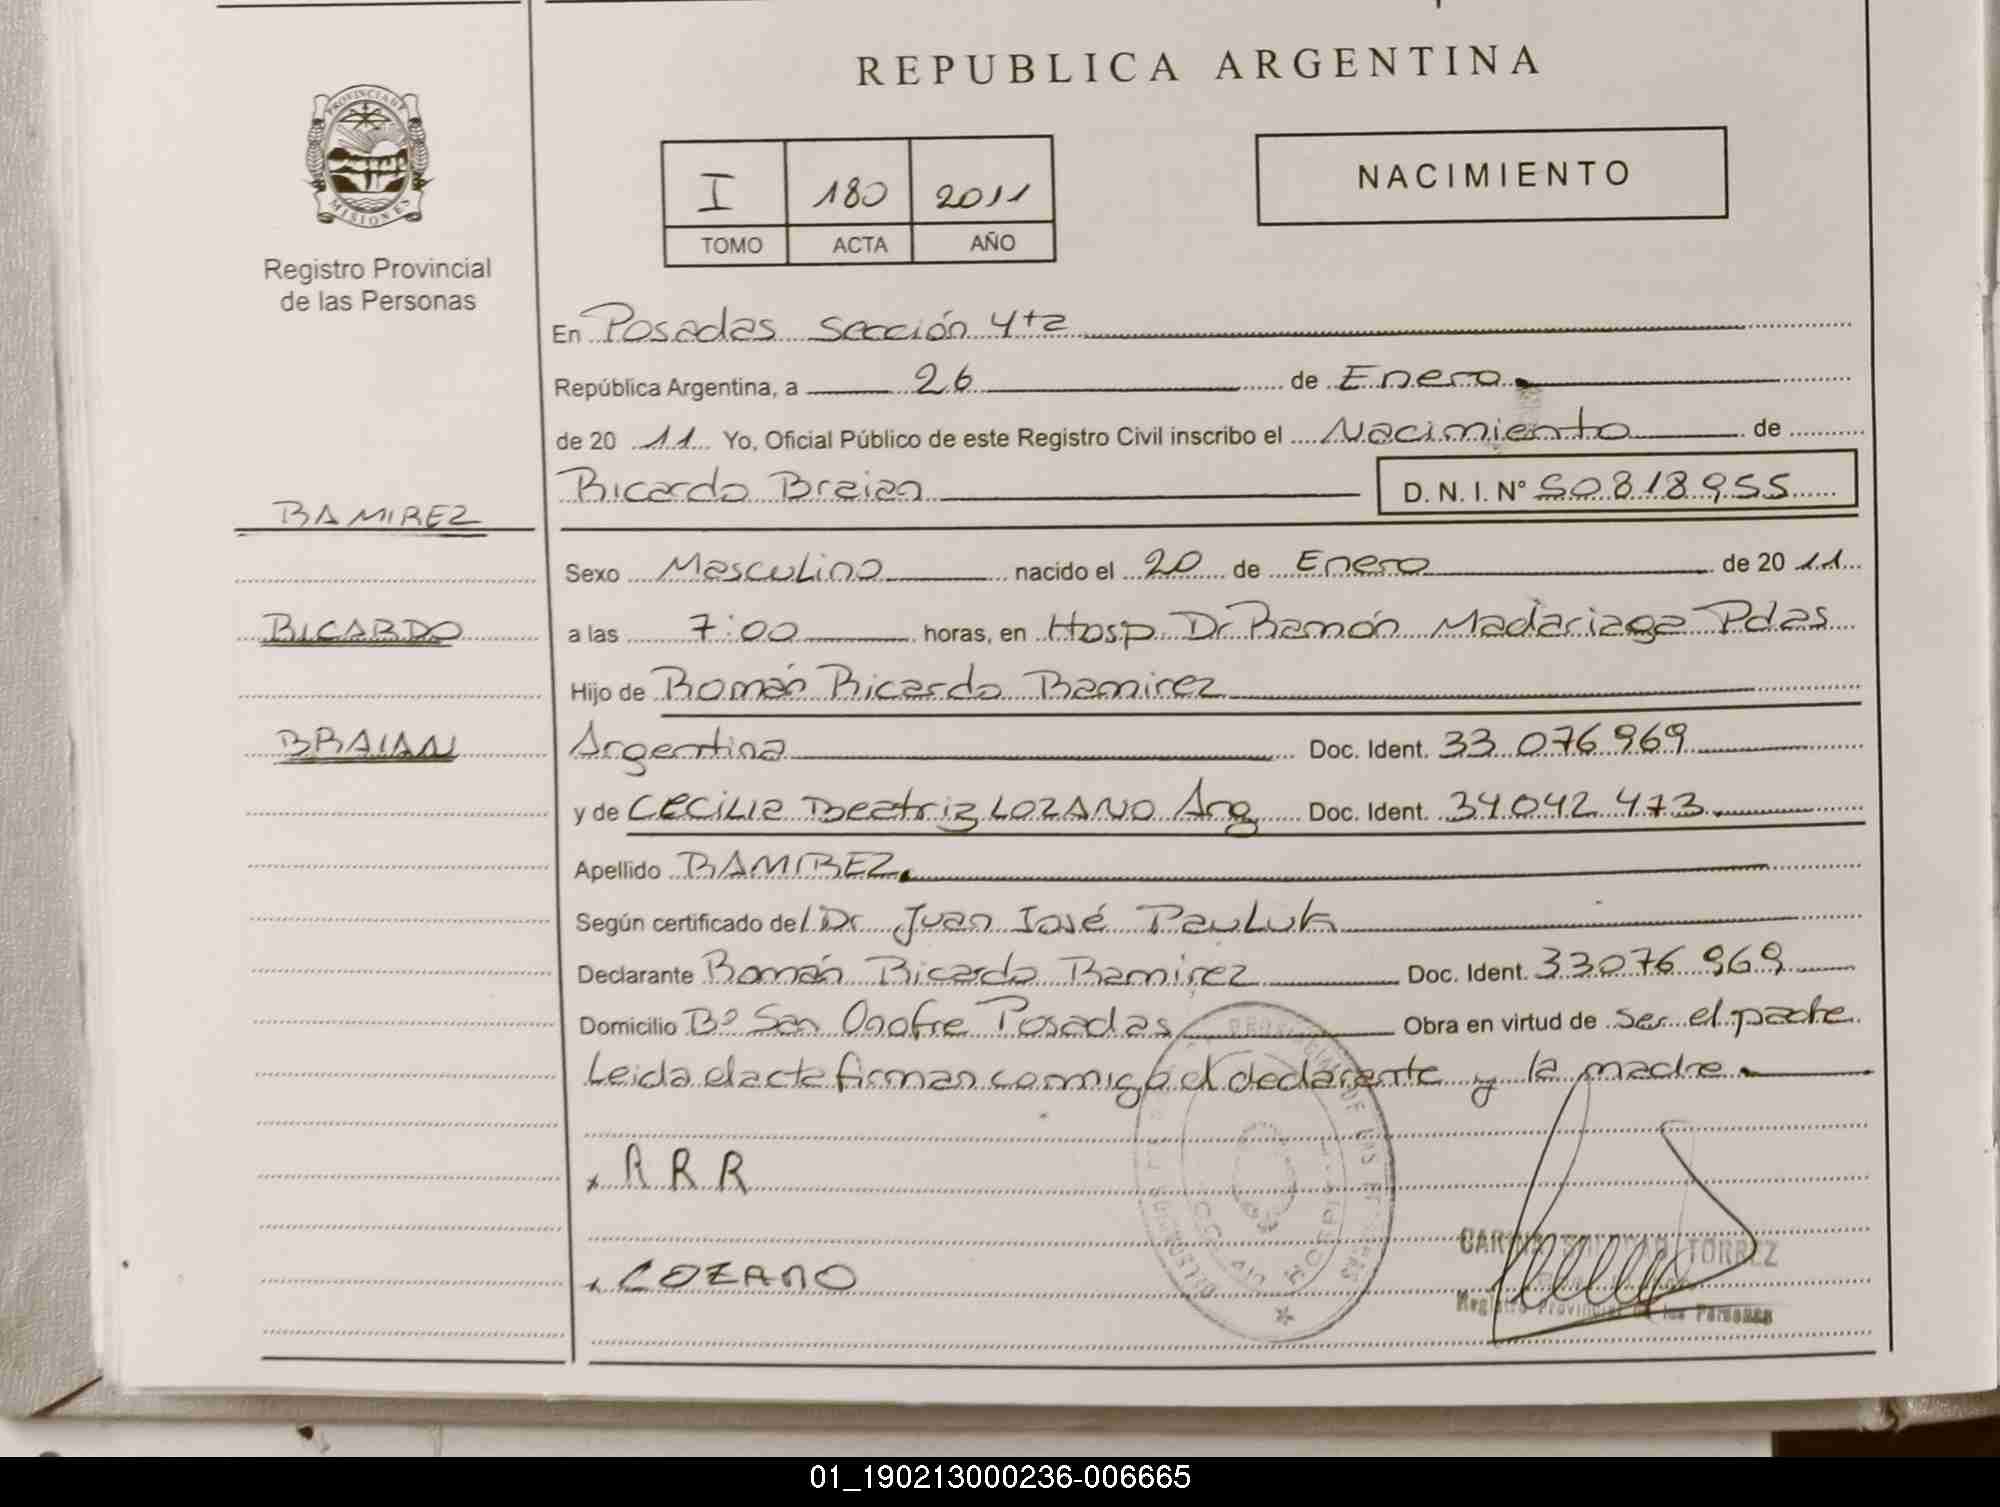 REPUBLICA ARGENTINA
PROVINCIA DE
MISIONES
Registro Provincial
de las Personas
I 180 2011
TOMO ACTA AÑO
NACIMIENTO
En Posadas Sección 4ta
República Argentina, a 26 de Enero
de 2011 Yo, Oficial Público de este Registro Civil inscribo el Nacimiento de
Ricardo Braian D. N. I. N° 50818955
RAMIREZ
RICARDO
BRAIAN
Sexo Masculino nacido el 20 de Enero de 2011
a las 7:00 horas, en Hosp Dr Ramón Madariaga Pdas
Hijo de Román Ricardo Ramirez
Argentina Doc. Ident. 33 076 969
y de CECILIA Beatriz LOZANO Arg Doc. Ident. 34042 473
Apellido RAMIREZ
Según certificado del Dr Juan José Pauluk
Declarante Román Ricardo Ramirez Doc. Ident. 33076 969
Domicilio B° San Onofre Posadas Obra en virtud de ser el padre
Leida el acta firman conmigo el declarante y la madre
x R R R
x LOZANO
TORREZ
Registro Provincial de las Personas
01_190213000236-006665